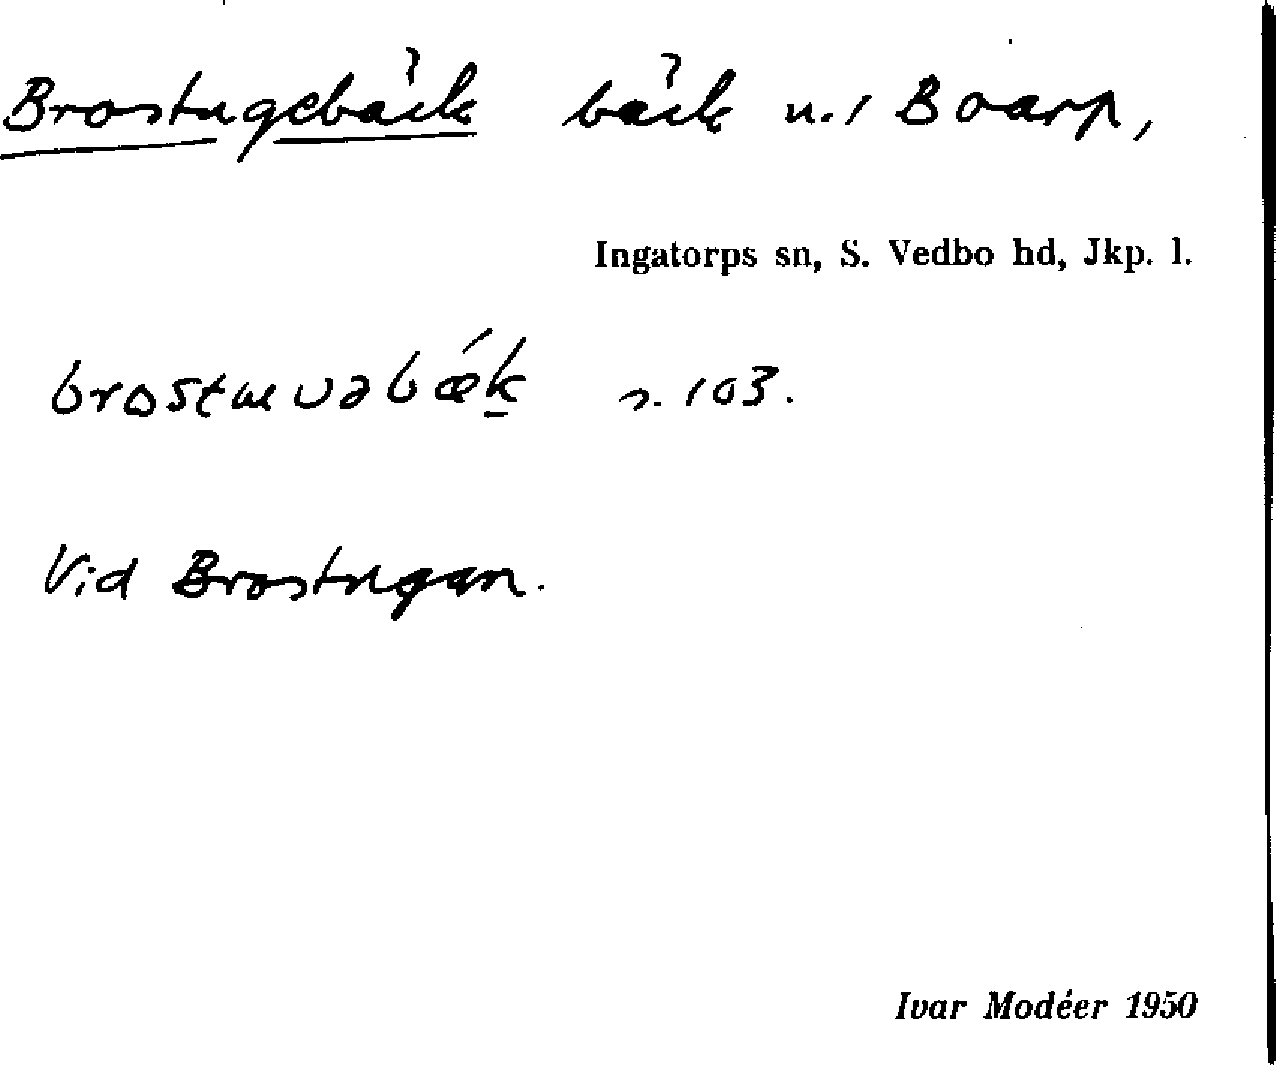 Brostugebäck bäck u. / Boarp,
Ingatorps sn, S. Vedbo hd, Jkp. l.
s. 103.
Vid Brostugan.
Ivar Modéer 1950